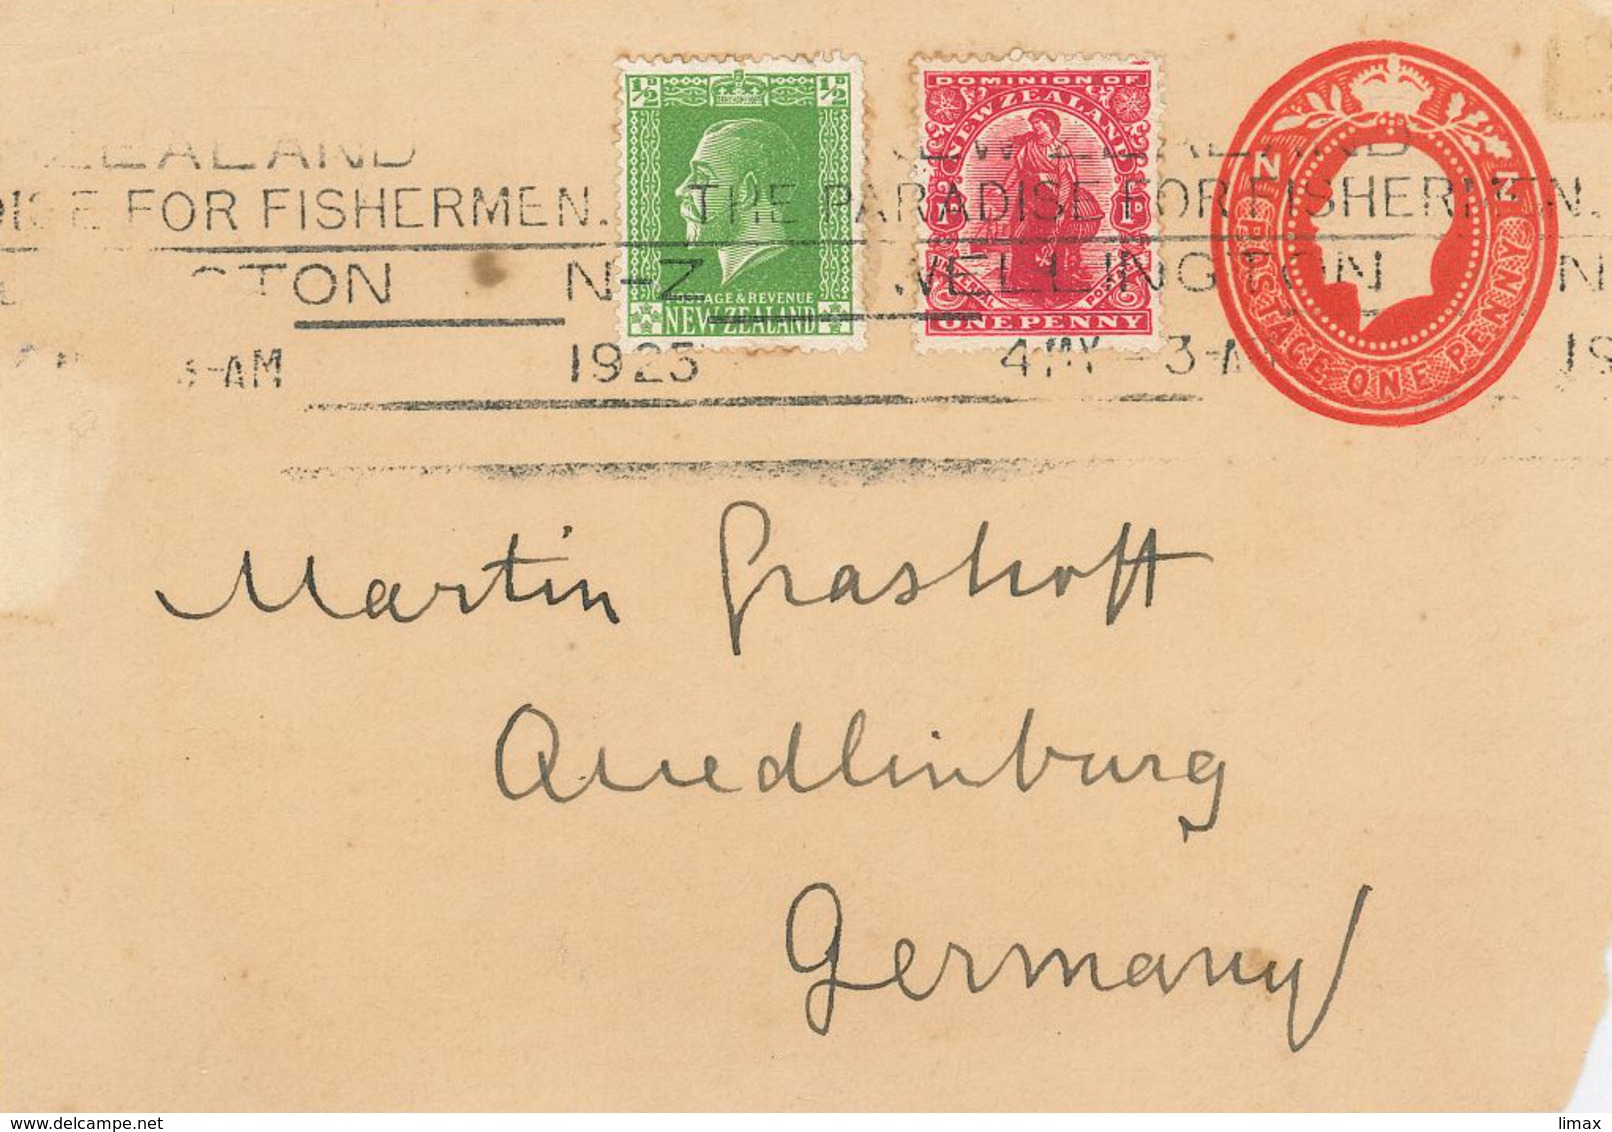 ½ ½
POSTAGE & REVENUE
NEW ZEALAND
DOMINION OF
NEW ZEALAND
1D 1D
UNIVERSAL POSTAGE
ONE PENNY
N Z
POSTAGE ONE PENNY
ZEALAND NEW ZEALAND
FOR FISHERMEN. THE PARADISE FOR FISHERMEN.
GTON N-Z WELLINGTON N
3-AM 1925 4 MY -3-A 19
Martin Grashoff
Quedlinburg
Germany
www.delcampe.net
limax